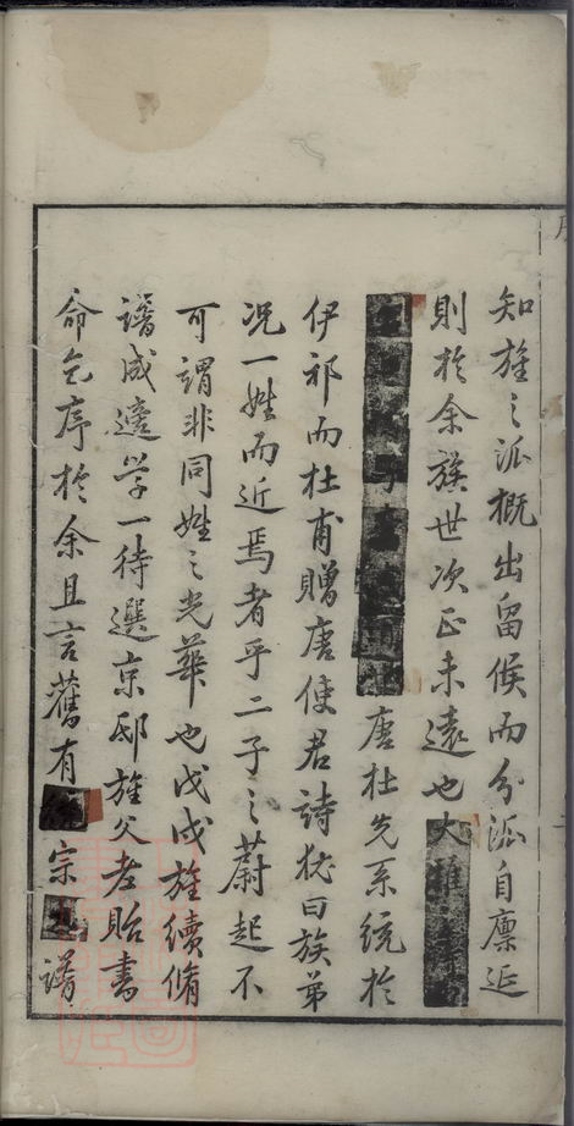 知旌之派概出留候而分派自廩延
則於余族世次正未遠也大
唐杜先系統於
伊祁而杜甫贈唐使君詩猶曰族弟
况一姓而近焉者乎二子之蔚起不
可謂非同姓之光華也戊戌旌續脩
譜成邉学一待選京邸旌父孝貽書
命乞序於余且言舊有宗譜